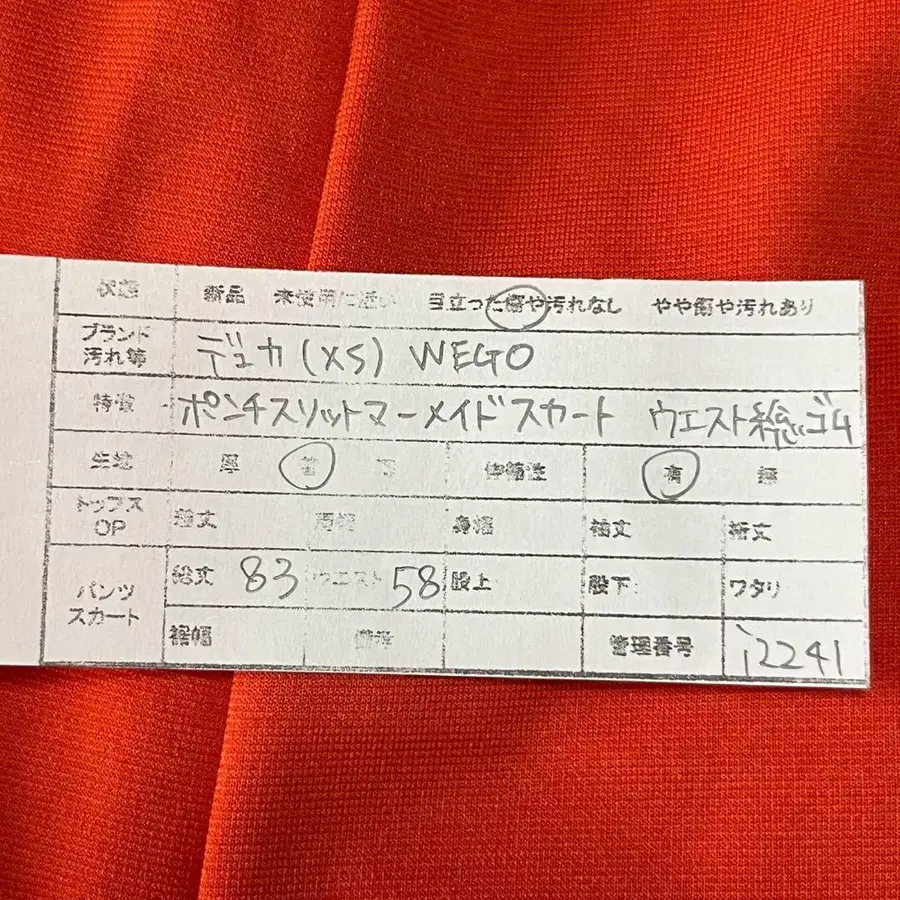 状態 新品 未使用に近い 目立った傷や汚れなし やや傷や汚れあり
ブランド
汚れ等 デュカ(XS) WEGO
特徴 ポンチスリットマーメイドスカート ウエスト総ゴム
生地 厚 普 伸縮性 有 無
トップス
OP 着丈 肩幅 身幅 袖丈 裄丈
パンツ
スカート 総丈 83 ウエスト 58 股上 股下 ワタリ
裾幅 備考 管理番号 i2241